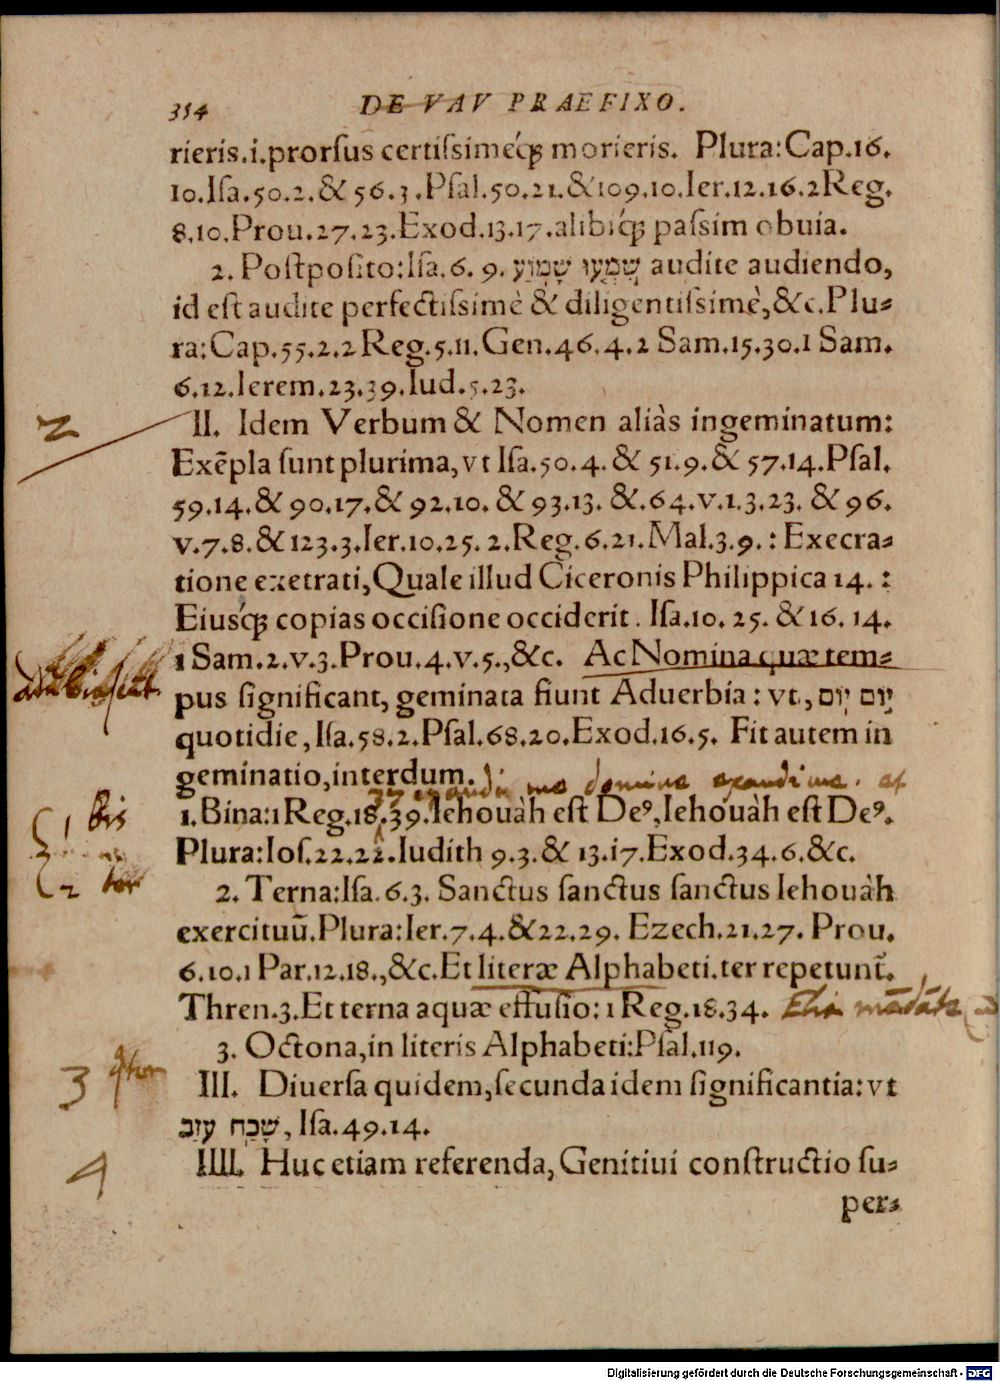 314 DE VAV PRAEFIXO.
rieris.i.prorſus certiſsimeq́ꝫ morieris. Plura:Cap.16.
10.Iſa.50.2.& 56.3.Pſal.50.21.&109.10.Ier.12.16.2Reg.
8.10.Prou.27.23.Exod.13.17.alibiq́ꝫ paſsim obuia.
2. Poſtpoſito:Iſa.6.9. שִׁמְעוּ שָׁמוֹעַ audite audiendo,
id eſt audite perfectiſsimè & diligentiſsimè,&c.Plu-
ra:Cap.55.2.2 Reg.5.11.Gen.46.4.2 Sam.15.30.1 Sam.
6.12.Ierem.23.39.Iud.5.23.
2
II. Idem Verbum & Nomen aliàs ingeminatum:
Exẽpla ſunt plurima,vt Iſa.50.4.& 51.9.& 57.14.Pſal.
59.14.& 90.17.& 92.10.& 93.13.&.64.v.1.3.23.& 96.
v.7.8.&123.3.Ier.10.25.2.Reg.6.21.Mal.3.9.: Execra-
tione exetrati,Quale illud Ciceronis Philippica 14.:
Eiusq́ꝫ copias occiſione occiderit. Iſa.10.25.&16.14.
1 Sam.2.v.3.Prou.4.v.5.,&c. Ac Nomina quæ tem-
pus ſignificant, geminata fiunt Aduerbia: vt, יוֹם יוֹם
quotidie,Iſa.58.2.Pſal.68.20.Exod.16.5. Fit autem in
geminatio,interdum.
37 exaudi me domine exaudi me.
1 Bis
1.Bina:1 Reg.18.39.Iehouàh eſt Deꝰ,Iehouàh eſt Deꝰ.
Plura:Ioſ.22.22.Iudith 9.3.& 13.17.Exod.34.6.&c.
2 ter
2. Terna:Iſa.6.3. Sanctus ſanctus ſanctus Iehouàh
exercituũ.Plura:Ier.7.4.&22.29. Ezech.21.27. Prou.
6.10.1 Par.12.18.,&c.Et literæ Alphabeti.ter repetunt̃.
Thren.3.Et terna aquæ effuſio: 1 Reg.18.34. Elia
3. Octona,in literis Alphabeti:Pſal.119.
3
III. Diuerſa quidem,ſecunda idem ſignificantia: vt
שָׁכַח עָזַב, Iſa.49.14.
4
IIII. Huc etiam referenda, Genitiui conſtructio ſu-
per-
Digitalisierung gefördert durch die Deutsche Forschungsgemeinschaft - DFG